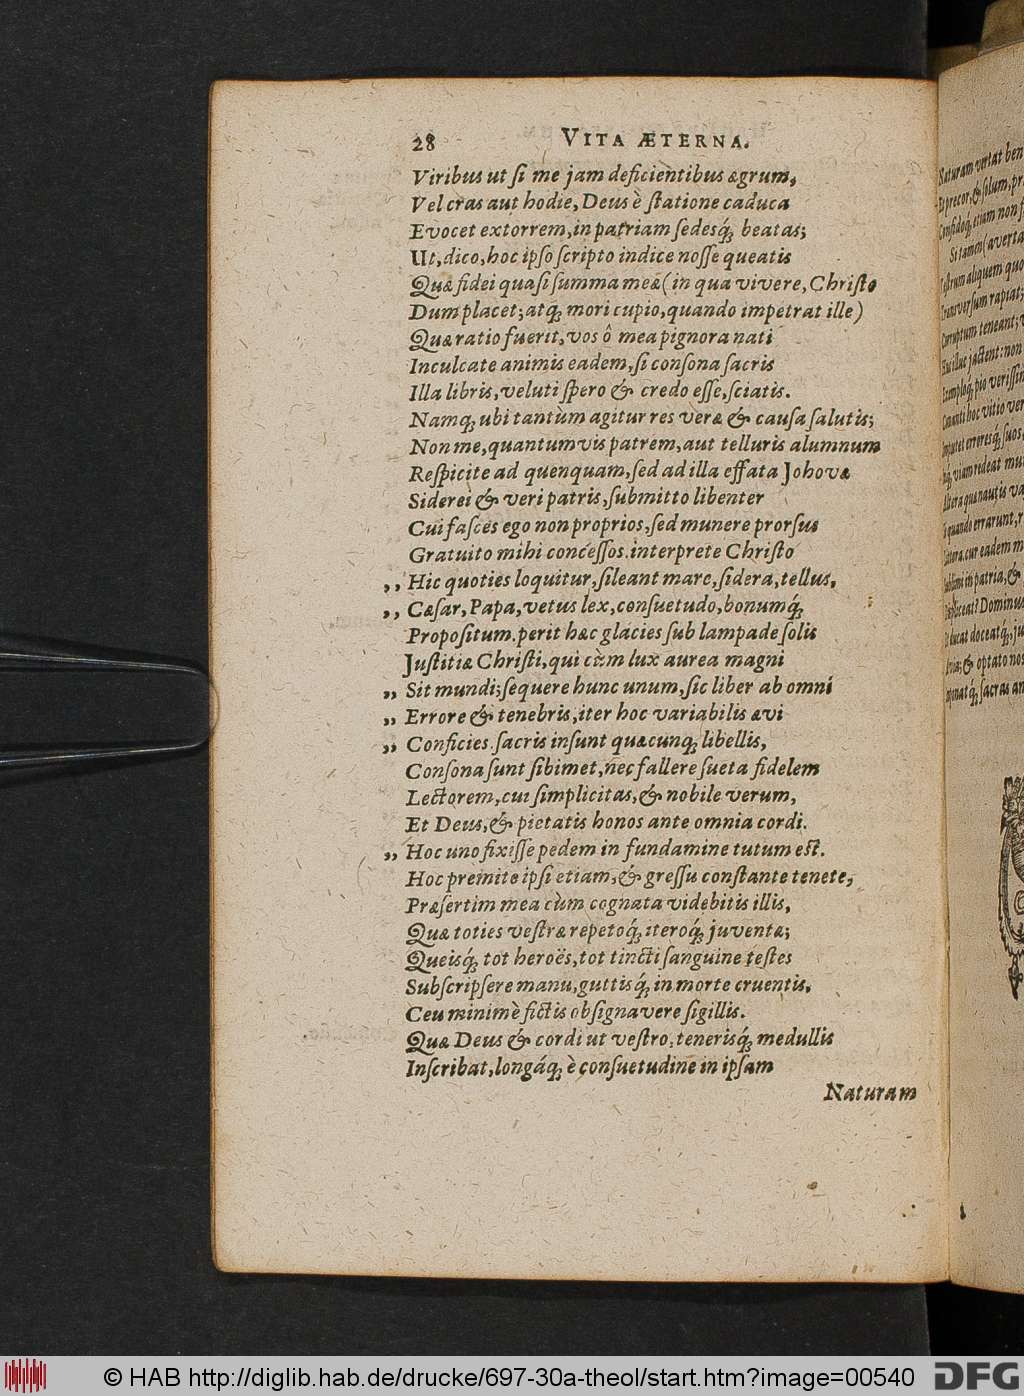 28 VITA ÆTERNA.
Viribus ut ſi me jam deficientibus ægrum,
Vel cras aut hodie, Deus è ſtatione caduca
Evocet extorrem, in patriam ſedesq́; beatas;
Ut, dico, hoc ipſo ſcripto indice noſſe queatis
Quæ fidei quaſi ſumma meæ (in qua vivere, Chriſto
Dum placet; atq; mori cupio, quando impetrat ille)
Quæ ratio fuerit, vos ô mea pignora nati
Inculcate animis eadem, ſi conſona ſacris
Illa libris, veluti ſpero & credo eſſe, ſciatis.
Namq; ubi tantùm agitur res veræ & cauſa ſalutis;
Non me, quantumvis patrem, aut telluris alumnum
Reſpicite ad quenquam, ſed ad illa effata Johovæ
Siderei & veri patris, ſubmitto libenter
Cui faſces ego non proprios, ſed munere prorſus
Gratuito mihi conceſſos. interprete Chriſto
,, Hic quoties loquitur, ſileant mare, ſidera, tellus,
,, Cæſar, Papa, vetus lex, conſuetudo, bonumq́;
Propoſitum. perit hæc glacies ſub lampade ſolis
Juſtitiæ Chriſti, qui cùm lux aurea magni
,, Sit mundi; ſequere hunc unum, ſic liber ab omni
,, Errore & tenebris, iter hoc variabilis ævi
,, Conficies. ſacris inſunt quæcunq; libellis,
Conſona ſunt ſibimet, nec fallere ſueta fidelem
Lectorem, cui ſimplicitas, & nobile verum,
Et Deus, & pietatis honos ante omnia cordi.
,, Hoc uno fixiſſe pedem in fundamine tutum eſt.
Hoc premite ipſi etiam, & greſſu conſtante tenete,
Præſertim mea cùm cognata videbitis illis,
Quæ toties veſtræ repetoq́; iteroq́; juventæ;
Queisq́; tot heroës, tot tincti ſanguine teſtes
Subſcripſere manu, guttisq́; in morte cruentis,
Ceu minimè fictis obſignavere ſigillis.
Quæ Deus & cordi ut veſtro, tenerisq́; medullis
Inſcribat, longáq; è conſuetudine in ipſam
Naturam
© HAB http://diglib.hab.de/drucke/697-30a-theol/start.htm?image=00540
DFG